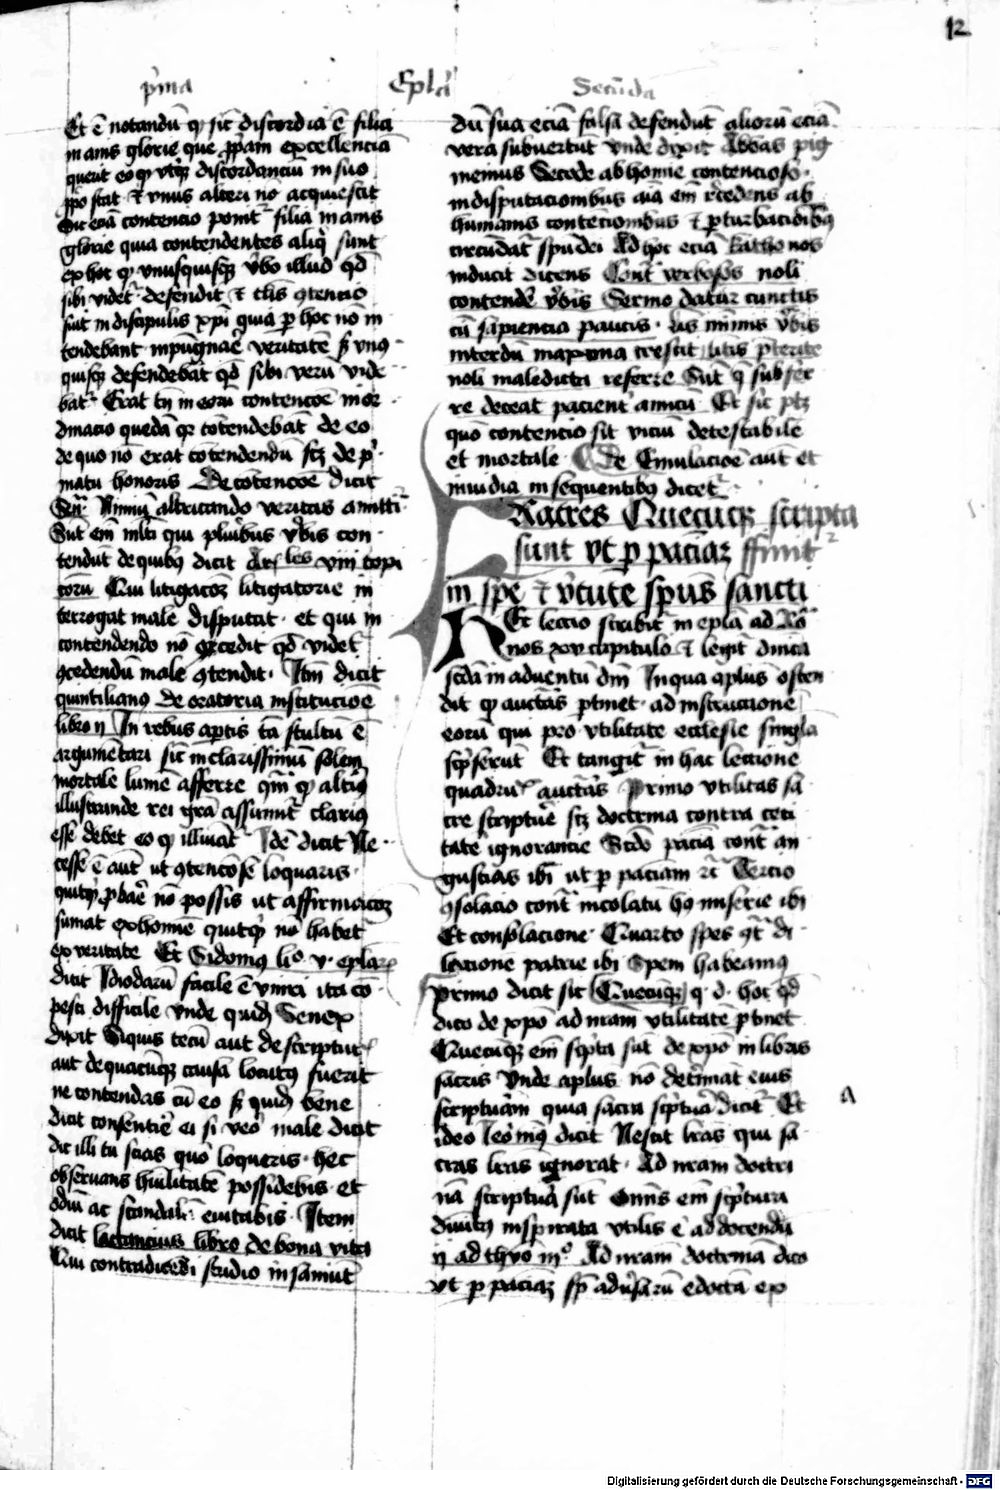 12
p'ma Epl'a Secūda
Et ē notandū q sic discordia ē filia
inanis glorie que ꝓpriam excellencia
querit eo q discordanciū in suo
stat et vnus alteri nō acquiescit
Sic eciā contencio ponit' filia inanis
glorie quia contendentes aliq sunt
ex hoc q vnusquisq v'bo illud qd
sibi videt' defendit et tlis ꝯtencio
fuit in discipulis xpi quia p hoc nō in
tendebant inpugnare veritatē s vnus
quisq defendebat qd sibi verū vide
bat' Erat tn in eorū contencōe inor
dinacio quedā qr cōtendebāt de eo
de quo nō erat cōtendendū scz de p'
matu honoris De cōtencōe dicit
Sen' Nimiū altercando veritas amitti'
Sūt em mlti qui pluribus v'bis con
tendūt de quibus dicit Ar les viii topi
corū Qui litigatorie in
terrogat male disputat et qui in
contendendo nō ꝯcedit qd videt'
ꝯcedendū male ꝯtendit Itm dicit
quintilianus de oratoria institucioē
libro In rebus aptis tā stultū ē
argumētari sic in clarissimū solem
mortale lumē afferre qm q altius
illustrande rei grā assumit' clarius
esse debet eo q illuīat' Idē dicit Ne
cesse ē aut ut ꝯtencōse loquaris
quitq ꝓbare nō possis ut affirmacōz
sumat ex homīe quitq nō habet
ex veritate Et Sidonius li° v eplar
dicit Idiodarū facile ē vinci ita cō
pesci difficile vnde quidā Senex
dixit Siquis tecū aut de scriptur
aut de quacūq causa locutus fuerit
ne contendas cū eo s quidē bene
dicit consentire ei si vero male dicit
dic illi tu scias quō loqueris hec
obseruans hūilitatē possidebis et
odiū ac scandalū euitabis Item
dicit lactancius libro de bona vita
Qui contradicēdi studio insaniūt
dū sua eciā falsa defendūt aliorū eciā
vera subuertūt vnde dixit Abbas pig
menius Secede ab homīe contencioso
in disputacionibus em recedens ab
humanis contēcionibus et pturbacōibus
circūdat' spū dei Ad hoc eciā katho nos
inducit dicens Cont' verbosos noli
contendē v'bis Sermo datur cunctis
cū sapiencia paucis lis minimis v'bis
interdū maxima crescit litis p'terite
noli maledicta referre Sūt q suffer
re deceat pacient' amicū Et sic ptz
quō contencio sit viciū detestabile
et mortale De Emulacioē aut et
inuidia in sequentibus dicet'
Fratres Quecūq scripta
sunt vt p paciaz ffinit
in spe et v'tute spūs sancti
Hec leccio scribit' in epla ad Ro
nos xv capitulo et legit' dnica
scda in aduentu dni In qua aplus osten
dit q auctas ptinet ad instructionē
eorū qui pro vtilitate ecclesie singla
scpserūt Et tangit' in hac leccione
quadru' auctas Primo vtilitas sa
cre scripture scz doctrina contra ceci
tatē ignorancie Scdo pacia cont' an
gustias ibi ut p paciam Tercio
ꝯsolacio cont' incolatū hꝰ miserie ibi
Et consolacione Quarto spes ꝯt' di
lacione patrie ibi Spem habeamꝰ
Primo dicit sic Quecūq q d hoc qd
dico de xpo ad nram vtilitatē ptinet
Quecūq em scpta sūt de xpo in libris
sacris vnde aplus nō detmat eius
scripturam quia sacra scptura dicit' Et
ideo Ieronimꝰ dicit Nescit lras qui sa
cras lras ignorat Ad nram doctri
nā scriptura sūt Omnis em scptura
diuinitꝰ inspirata vtilis ē ad docendū
ad thyo iii° Ad nram doctrinā dico
vt p paciaz sp aduersarū edocta ex
A
Digitalisierung gefördert durch die Deutsche Forschungsgemeinschaft - DFG